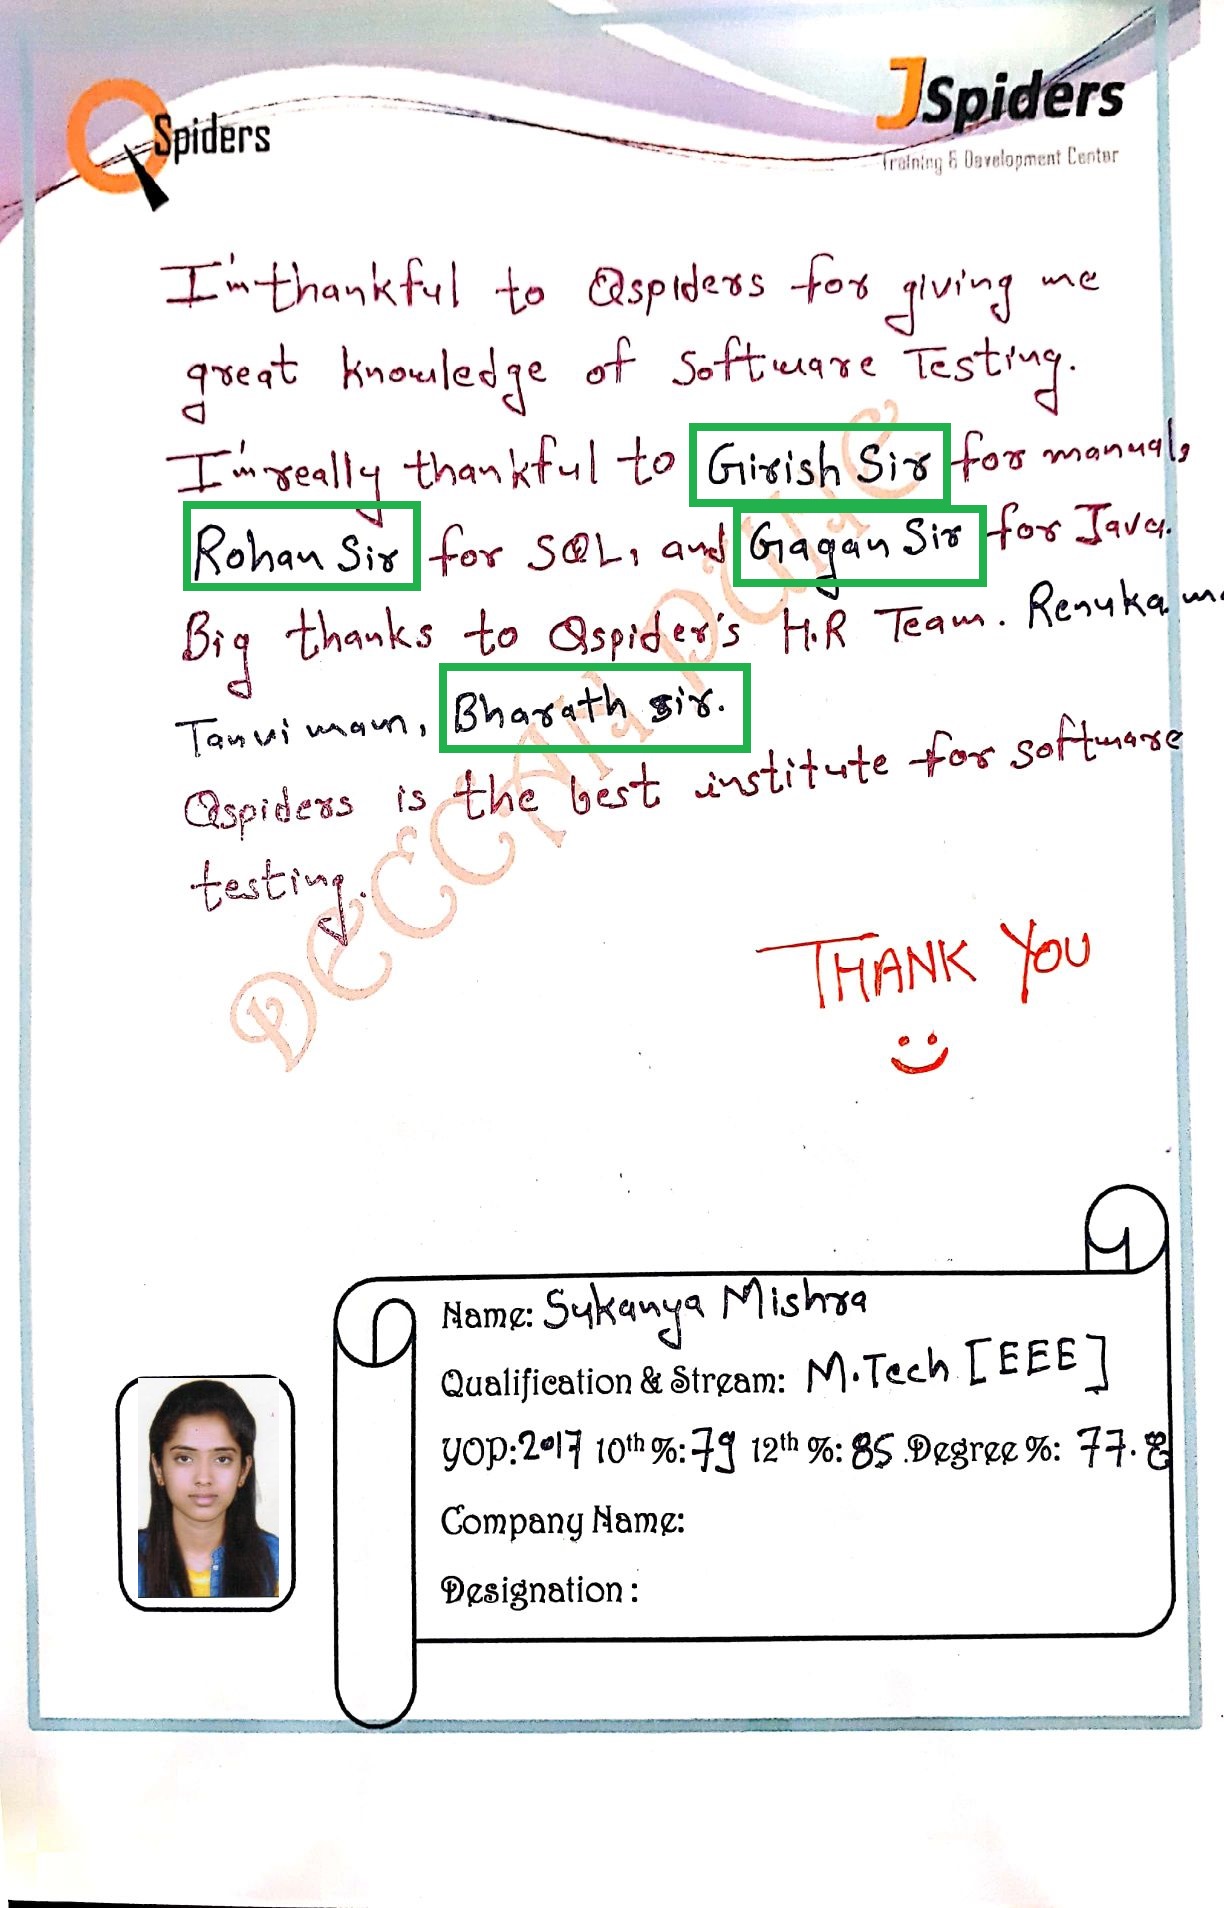 QSpiders
JSpiders
Training & Development Center
I'm thankful to Qspiders for giving me
great knowledge of Software Testing.
I'm really thankful to Girish Sir for manual,
Rohan Sir for SQL, and Gagan Sir for Java.
Big thanks to Qspider's H.R Team. Renuka
Tanvi mam, Bharath sir.
Qspiders is the best institute for software
testing.
DECCAN
THANK YOU
Name: Sukanya Mishra
Qualification & Stream: M.Tech [EEE]
YOP: 2017 10th %: 79 12th %: 85 Degree %: 77.8
Company Name:
Designation :